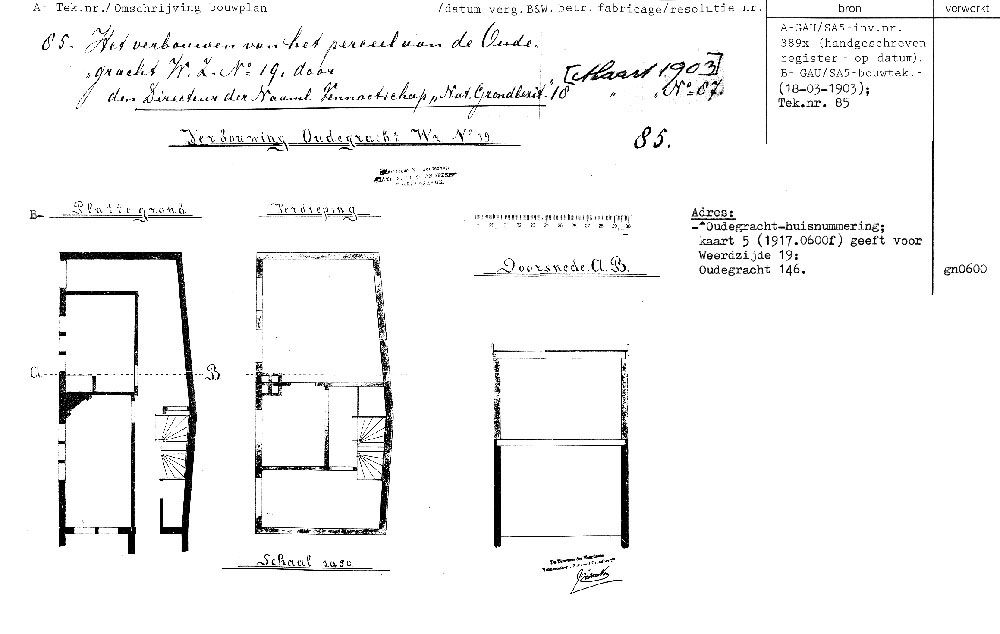 A- Tek.nr./Omschrijving bouwplan /datum verg.B&W.betr.fabricage/resolutie nr. bron verwerkt
85. Het verbouwen van het perceel aan de Oude-
gracht W. Z. No 19, door [Maart 1903]
den Directeur der Naaml. Vennootschap "Nat. Grondbezit. 18 " " No 87
A-GAU/SA5-inv.nr.
389x (handgeschreven
register - op datum).
B- GAU/SA5-bouwtek.-
(18-03-1903);
Tek.nr. 85
Verbouwing Oudegracht Wz No 19
85.
B- Plattegrond
Verdieping
Doorsnede A.B.
Adres:
Oudegracht-huisnummering;
kaart 5 (1917.0600f) geeft voor
Weerdzijde 19:
Oudegracht 146. gn0600
A B
Schaal